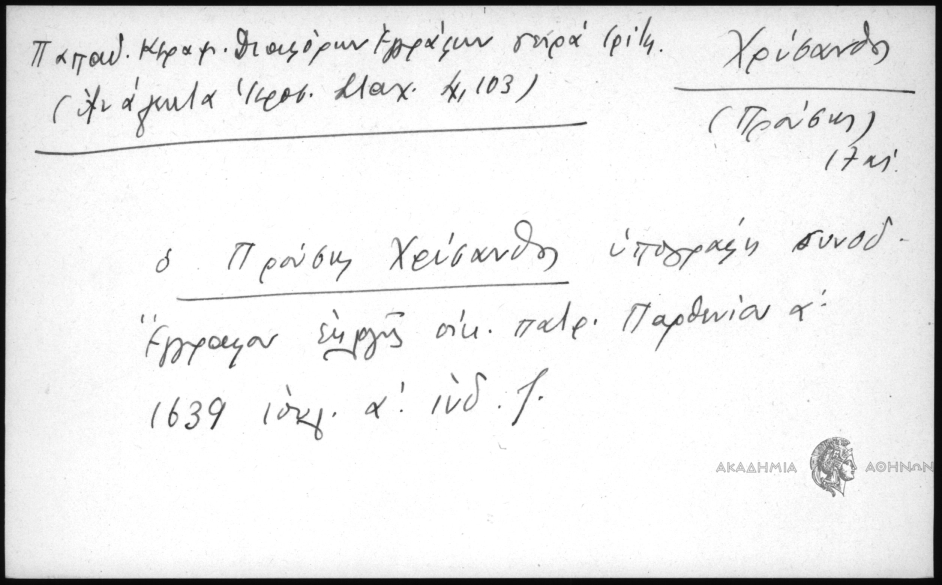 Παπαδ. Κεραμ. Διαφόρων Ἐγγράφων σειρά τρίτη.
(Ἀνάλεκτα Ἱεροσ. Σταχ. Δ, 103)
Χρύσανθος
(Προύσης)
17 αἰ.
ὁ Προύσης Χρύσανθος ὑπογράφει συνοδ.
Ἔγγραφον ἐπὶ οἰκ. πατρ. Παρθενίου α΄
1639 ἰουλ. α΄ ἰνδ. ζ.
ΑΚΑΔΗΜΙΑ ΑΘΗΝΩΝ